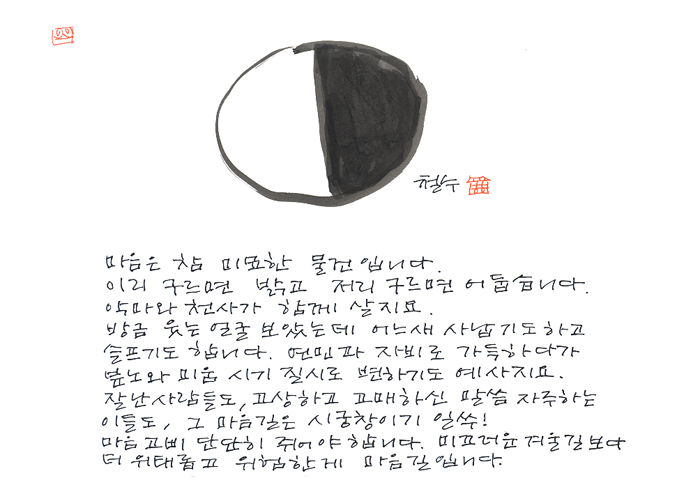 철수
마음은 참 미묘한 물건입니다.
이리 구르면 밝고 저리 구르면 어둡습니다.
악마와 천사가 함께 살지요.
방금 웃는 얼굴 보았는데 어느새 사납기도하고
슬프기도 합니다. 연민과 자비로 가득하다가
분노와 미움 시기 질시로 변하기도 예사지요.
잘난사람들도, 고상하고 고매하신 말씀 자주하는
이들도, 그 마음길은 시궁창이기 일쑤!
마음고삐 단단히 쥐어야 합니다. 미끄러운 겨울길보다
더 위태롭고 위험한게 마음길입니다.